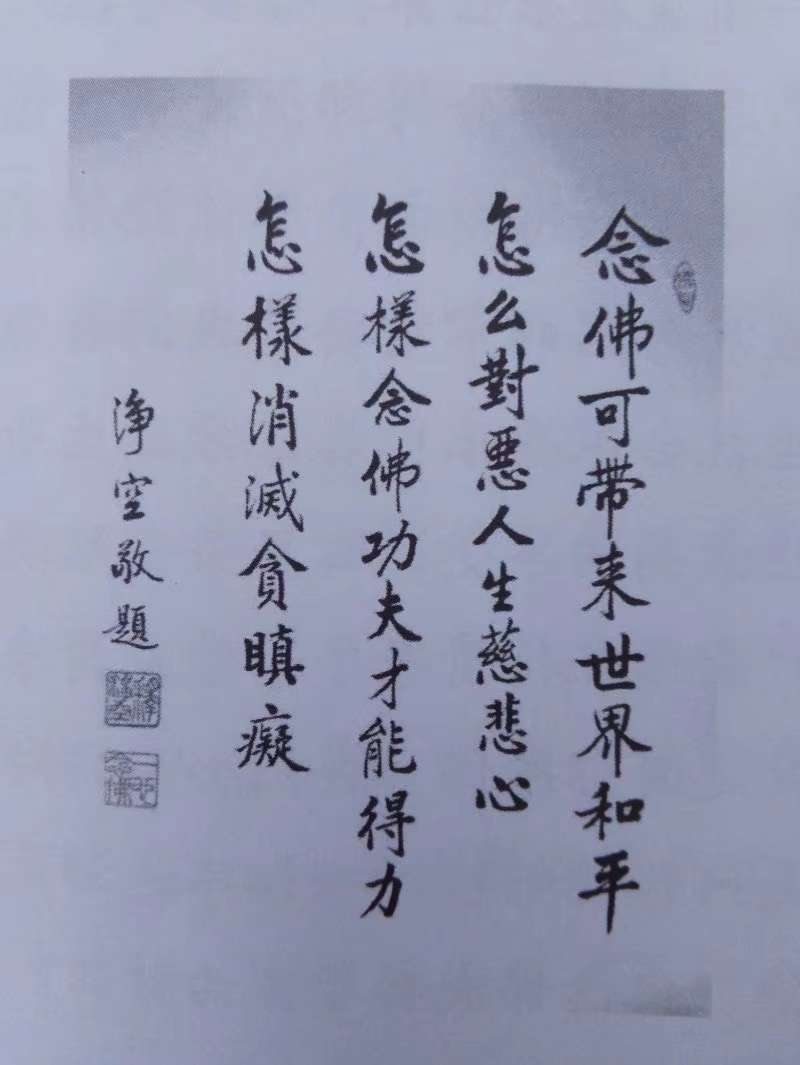 念佛可带来世界和平
怎么對惡人生慈悲心
怎樣念佛功夫才能得力
怎樣消滅貪瞋癡
淨空敬題